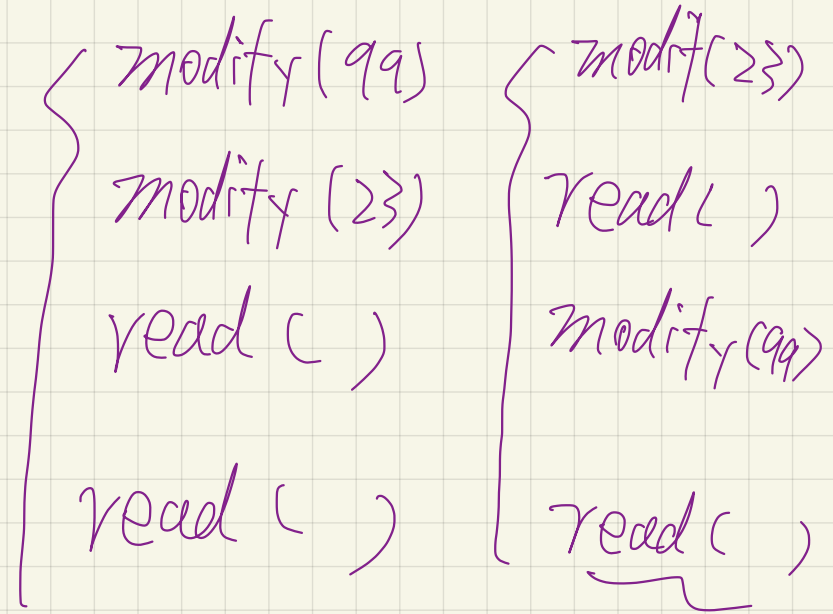 modify(99)
modify(23)
read( )
read( )
modify(23)
read( )
modify(99)
read( )